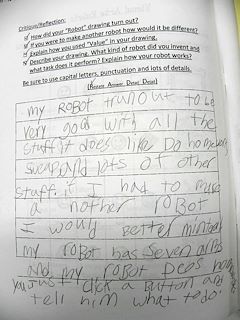 Critique/Reflection:
How did your "Robot" drawing turn out?
If you were to make another robot how would it be different?
Explain how you used "Value" in your drawing.
Describe your drawing. What kind of robot did you invent and
what task does it perform? Explain how your robot works?
Be sure to use capital letters, punctuation and lots of details.
(Restate Answer Detail Detail)
my RoBot trunout to be
very good with all the
stuff it does like Do homework
lots of other
stuff. if I had to make
a nother roBot
I would better
my roBot has seven
and my roBot Deos
you Just click a button and
tell him what to do.